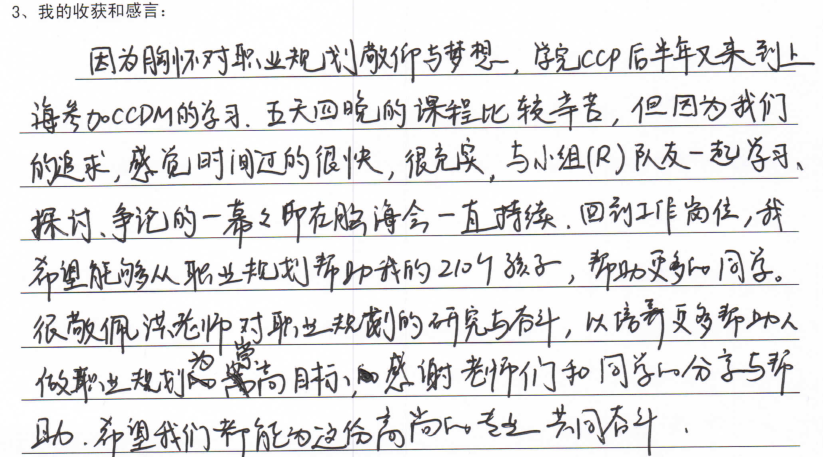 3、我的收获和感言：
因为胸怀对职业规划敬仰与梦想，学完CCP后半年又来到上
海参加CCDM的学习．五天四晚的课程比较辛苦，但因为我们
的追求，感觉时间过的很快，很充实，与小组(R)队友一起学习、
探讨、争论的一幕々印在脑海会一直持续．回到工作岗位，我
希望能够从职业规划帮助我的210个孩子，帮助更多的同学。
很敬佩洪老师对职业规划的研究与奋斗，以培养更多帮助人
做职业规划为崇高目标，感谢老师们和同学的分享与帮
助．希望我们都能为这份高尚的专业共同奋斗．